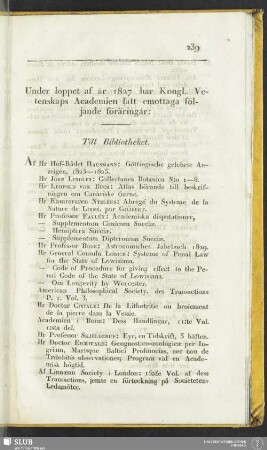 239
Under loppet af år 1827 har Kongl. Ve-
tenskaps Academien fått emottaga föl-
jande föräringar:
Till Bibliotheket.
Af Hr Hof-Rådet Hausmann: Göttingische gelehrte An-
zeigen, 1823—1825.
Hr John Lindley: Collectanea Botanica N:o 1—8.
Hr Leopold von Buch: Atlas hörande till beskrif-
ningen om Canariske Öarne.
Hr Kammerherren Nyblæus: Abregé du Systeme de la
Nature de Linné, par
Hr Professor Fallén: Academiska disputationer,
— Supplementum Cimicum Sueciæ.
— Hemiptera Sueciæ.
— Supplementum Dipterorum Sueciæ.
Hr Professor Bode: Astronomischer Jahrbuch 1829.
Hr General Consuln Lorich: Systems of Penal Law
for the State of Lowisiana.
— Code of Procedure for giving effect to the Pe-
nal Code of the State of Lowisiana.
— Om Longevity by Worcester.
American Philosophical Society, des Transactions
P. 2. Vol. 3.
Hr Doctor Civiale: De la Lithotritie ou broiement
de la pierre dans la Vessie.
Academien i Bonn: Dess Handlingar, 12te Vol.
Hr Professor Eyr, en Tidskrift, 3 häften.
Hr Doctor Eichwald: Geognostico-zoologicæ per In-
griam, Marisque Baltici Provincias, nec non de
Trilobitis observationes; Program vid en Acade-
misk högtid.
Af Linnean Society i London: 15de Vol. af dess
Transactions, jemte en förteckning på Societetens
Ledamöter.
SLUB